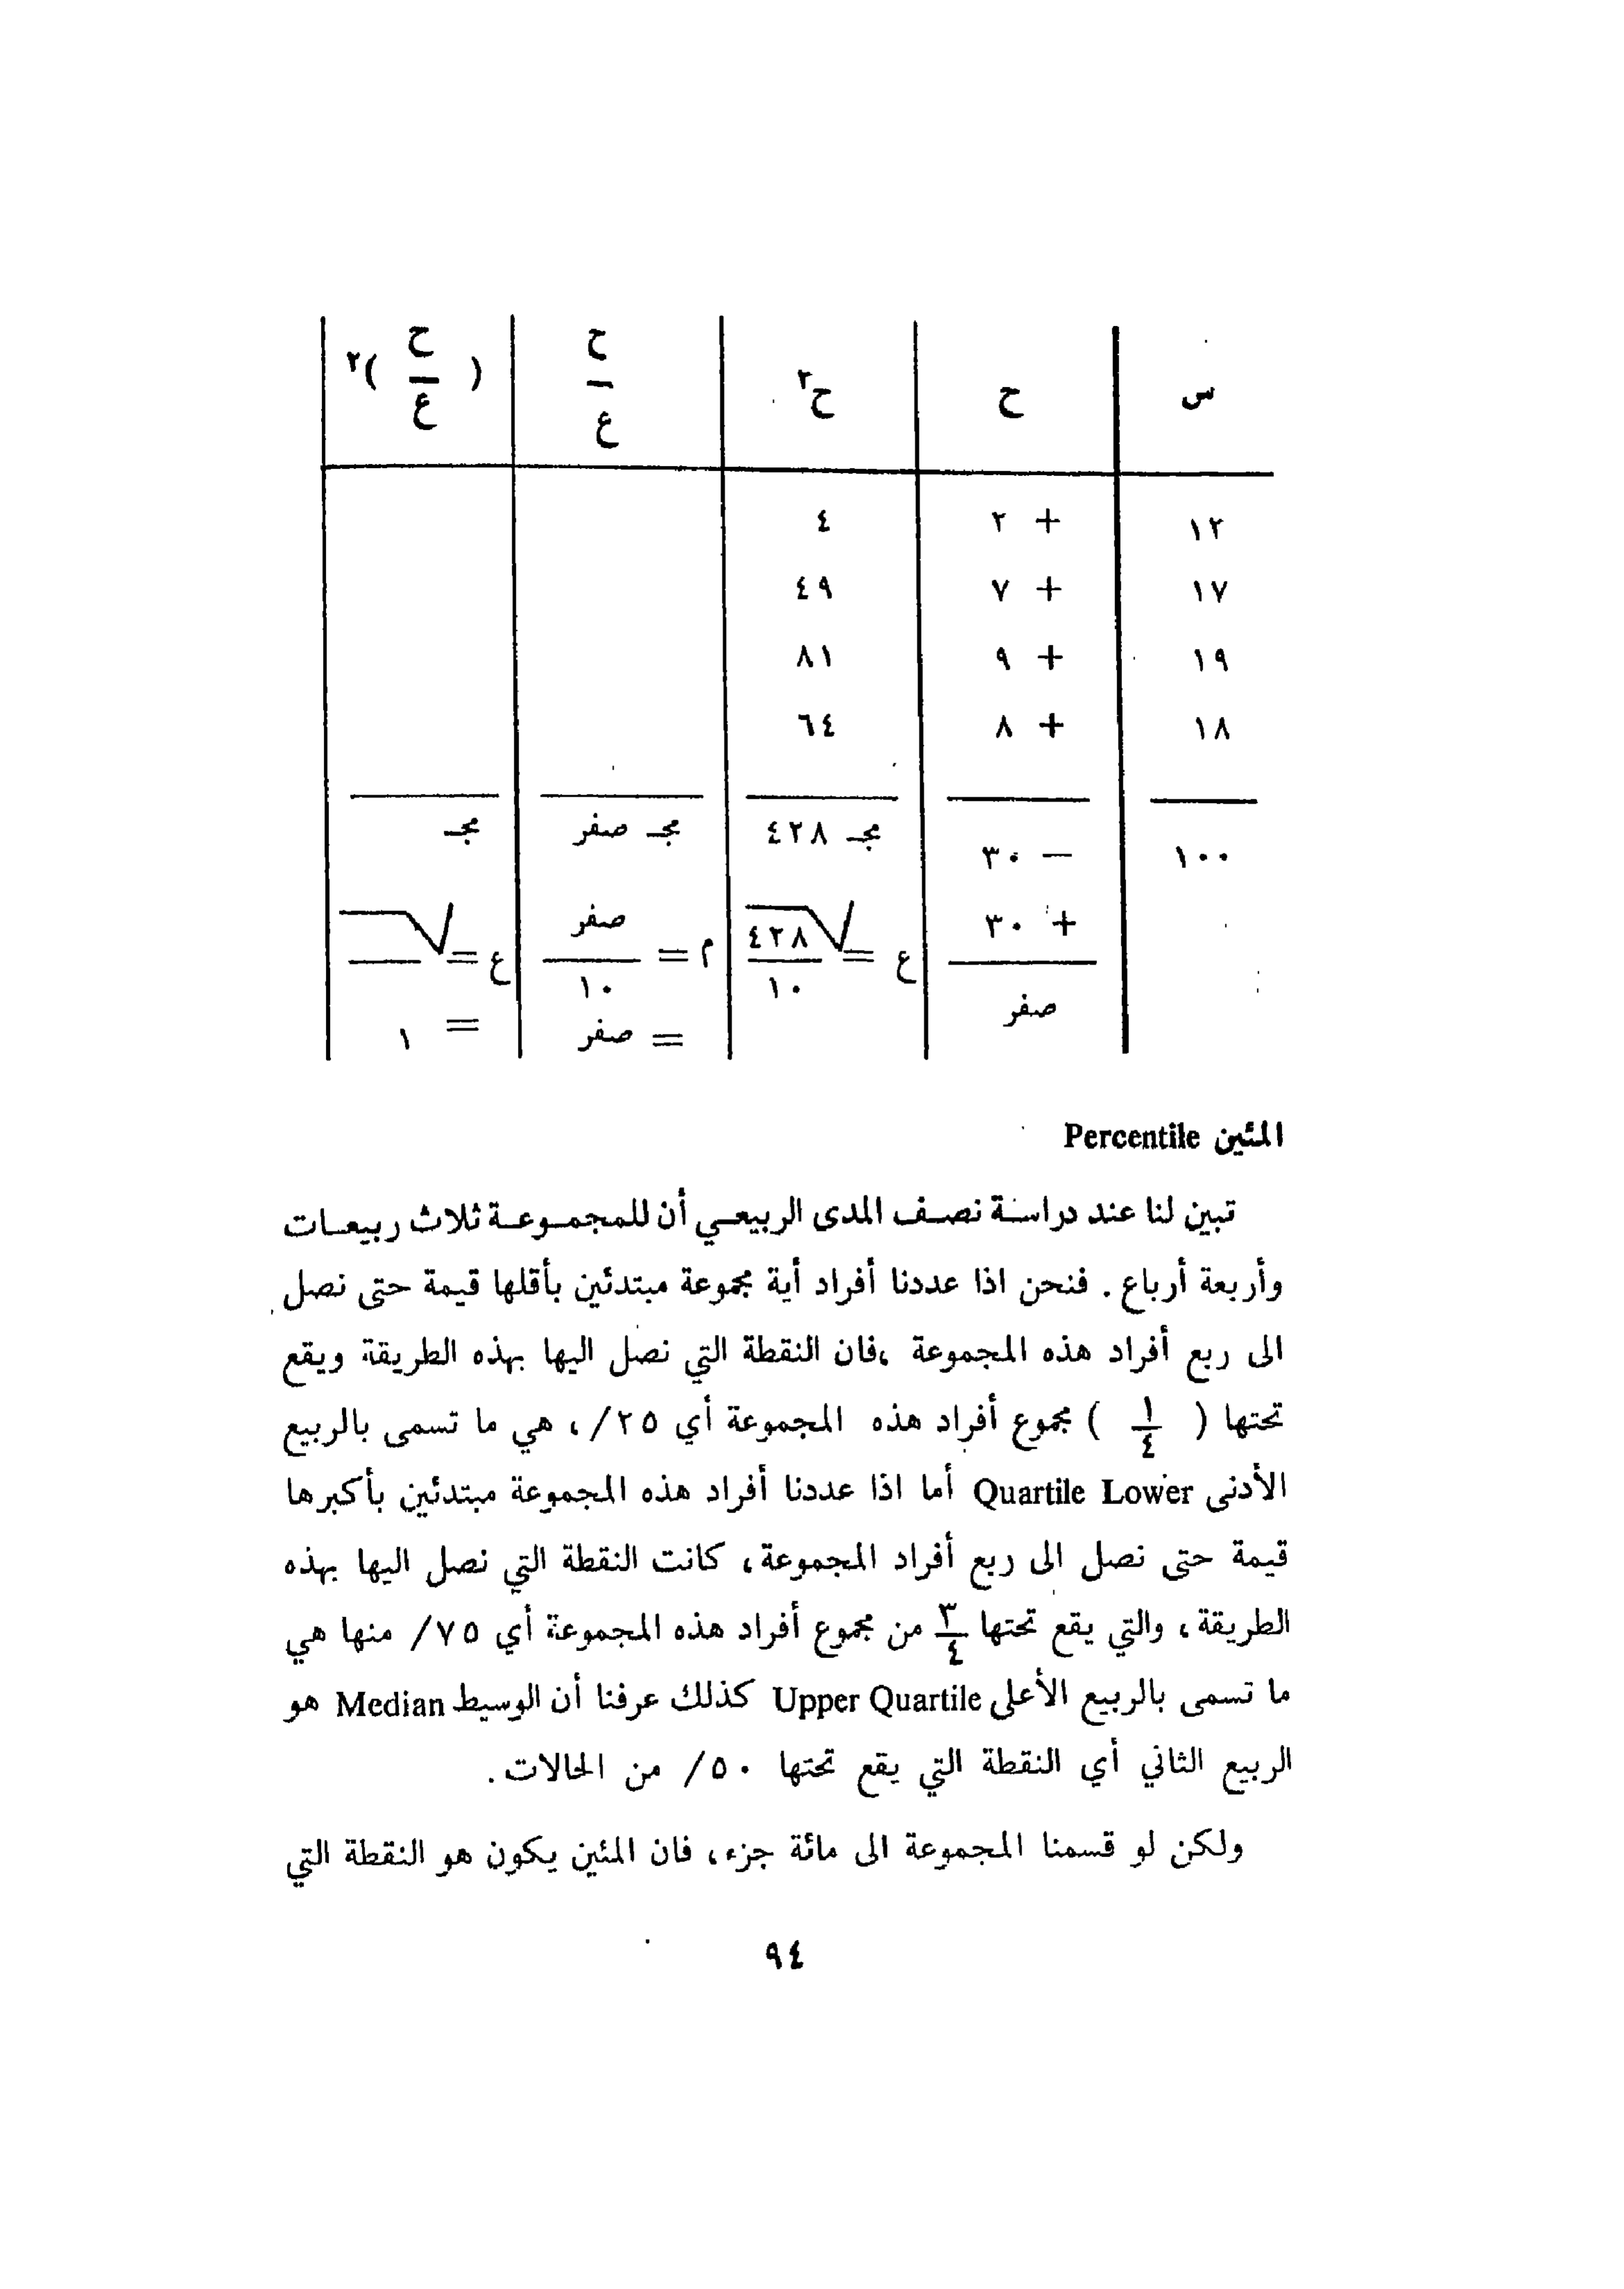 س | ح | ح٢ | ح/ع | (ح/ع)٢
١٢ | + ٢ | ٤
١٧ | + ٧ | ٤٩
١٩ | + ٩ | ٨١
١٨ | + ٨ | ٦٤
١٠٠ | − ٣٠ | مجـ ٤٢٨ | مجـ صفر | مجـ
+ ٣٠ | ع = √٤٢٨/١٠ | م = صفر/١٠ | ع = √
صفر | = صفر | = ١
المئين Percentile
تبين لنا عند دراسة نصف المدى الربيعي أن للمجموعة ثلاث ربيعات
وأربعة أرباع . فنحن اذا عددنا أفراد أية مجموعة مبتدئين بأقلها قيمة حتى نصل
الى ربع أفراد هذه المجموعة ،فان النقطة التي نصل اليها بهذه الطريقة ويقع
تحتها ( ١/٤ ) مجموع أفراد هذه المجموعة أي ٢٥/ ، هي ما تسمى بالربيع
الأدنى Quartile Lower أما اذا عددنا أفراد هذه المجموعة مبتدئين بأكبرها
قيمة حتى نصل الى ربع أفراد المجموعة، كانت النقطة التي نصل اليها بهذه
الطريقة، والتي يقع تحتها ٣/٤ من مجموع أفراد هذه المجموعة أي ٧٥/ منها هي
ما تسمى بالربيع الأعلى Upper Quartile كذلك عرفنا أن الوسيط Median هو
الربيع الثاني أي النقطة التي يقع تحتها ٥٠/ من الحالات.
ولكن لو قسمنا المجموعة الى مائة جزء، فان المئين يكون هو النقطة التي
٩٤